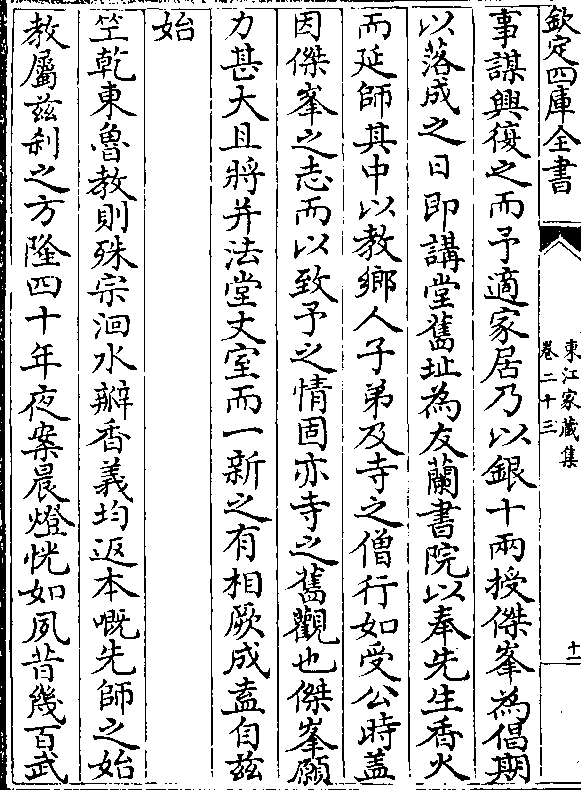 欽定四庫全書
東江家藏集
卷二十三
十一
事謀興復之而予適家居乃以銀十兩授傑峯為倡期
以落成之日即講堂舊址為友蘭書院以奉先生香火
而延師其中以教鄉人子弟及寺之僧行如受公時蓋
因傑峯之志而以致予之情固亦寺之舊觀也傑峯願
力甚大且將并法堂丈室而一新之有相厥成盍自兹
始
竺乾東魯教則殊宗洄水瓣香義均返本嘅先師之始
教屬兹刹之方隆四十年夜案晨燈恍如夙昔幾百武